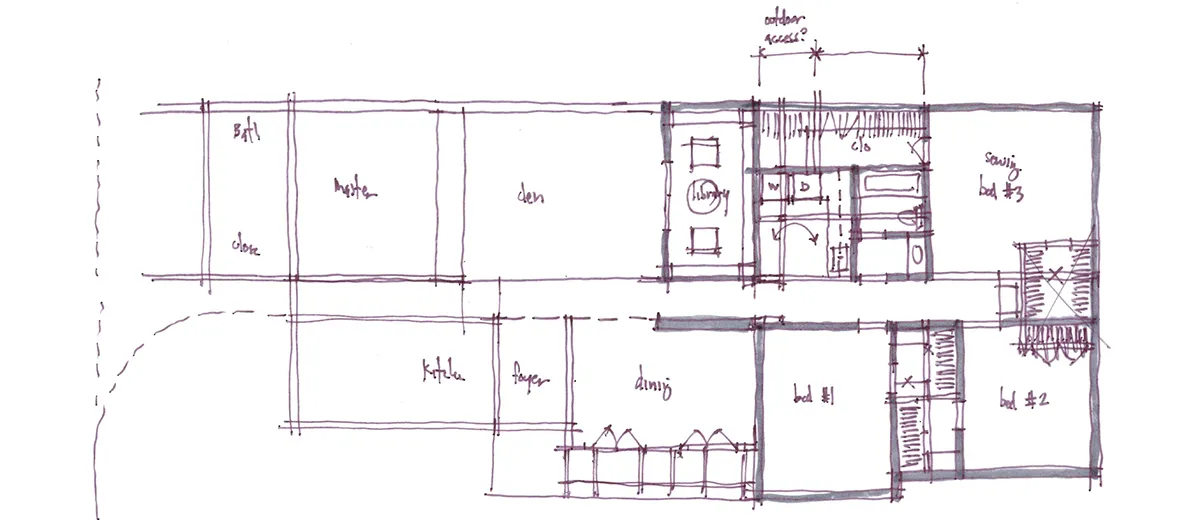 outdoor
access?
Bath
Master
den
library
W D
clo
sewing
bed #3
close
Kitchen
foyer
dining
bed #1
bed #2